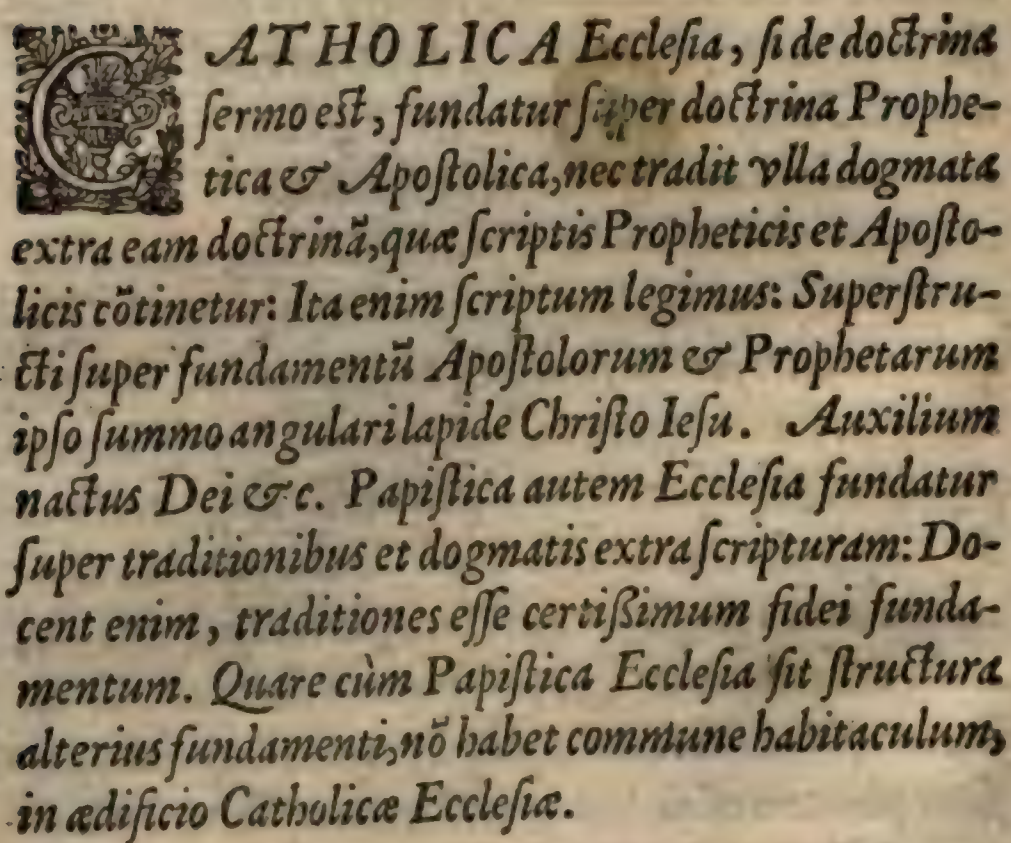 CATHOLICA Eccleſia, ſi de doctrina
ſermo eſt, fundatur ſuper doctrina Prophe-
tica & Apoſtolica, nec tradit vlla dogmata
extra eam doctrinã, quæ ſcriptis Propheticis et Apoſto-
licis cõtinetur: Ita enim ſcriptum legimus: Superſtru-
cti ſuper fundamentũ Apoſtolorum & Prophetarum
ipſo ſummo angulari lapide Chriſto Ieſu. Auxilium
nactus Dei &c. Papiſtica autem Eccleſia fundatur
ſuper traditionibus et dogmatis extra ſcripturam: Do-
cent enim, traditiones eſſe certißimum fidei funda-
mentum. Quare cùm Papiſtica Eccleſia ſit ſtructura
alterius fundamenti, nõ habet commune habitaculum,
in ædificio Catholicæ Eccleſiæ.